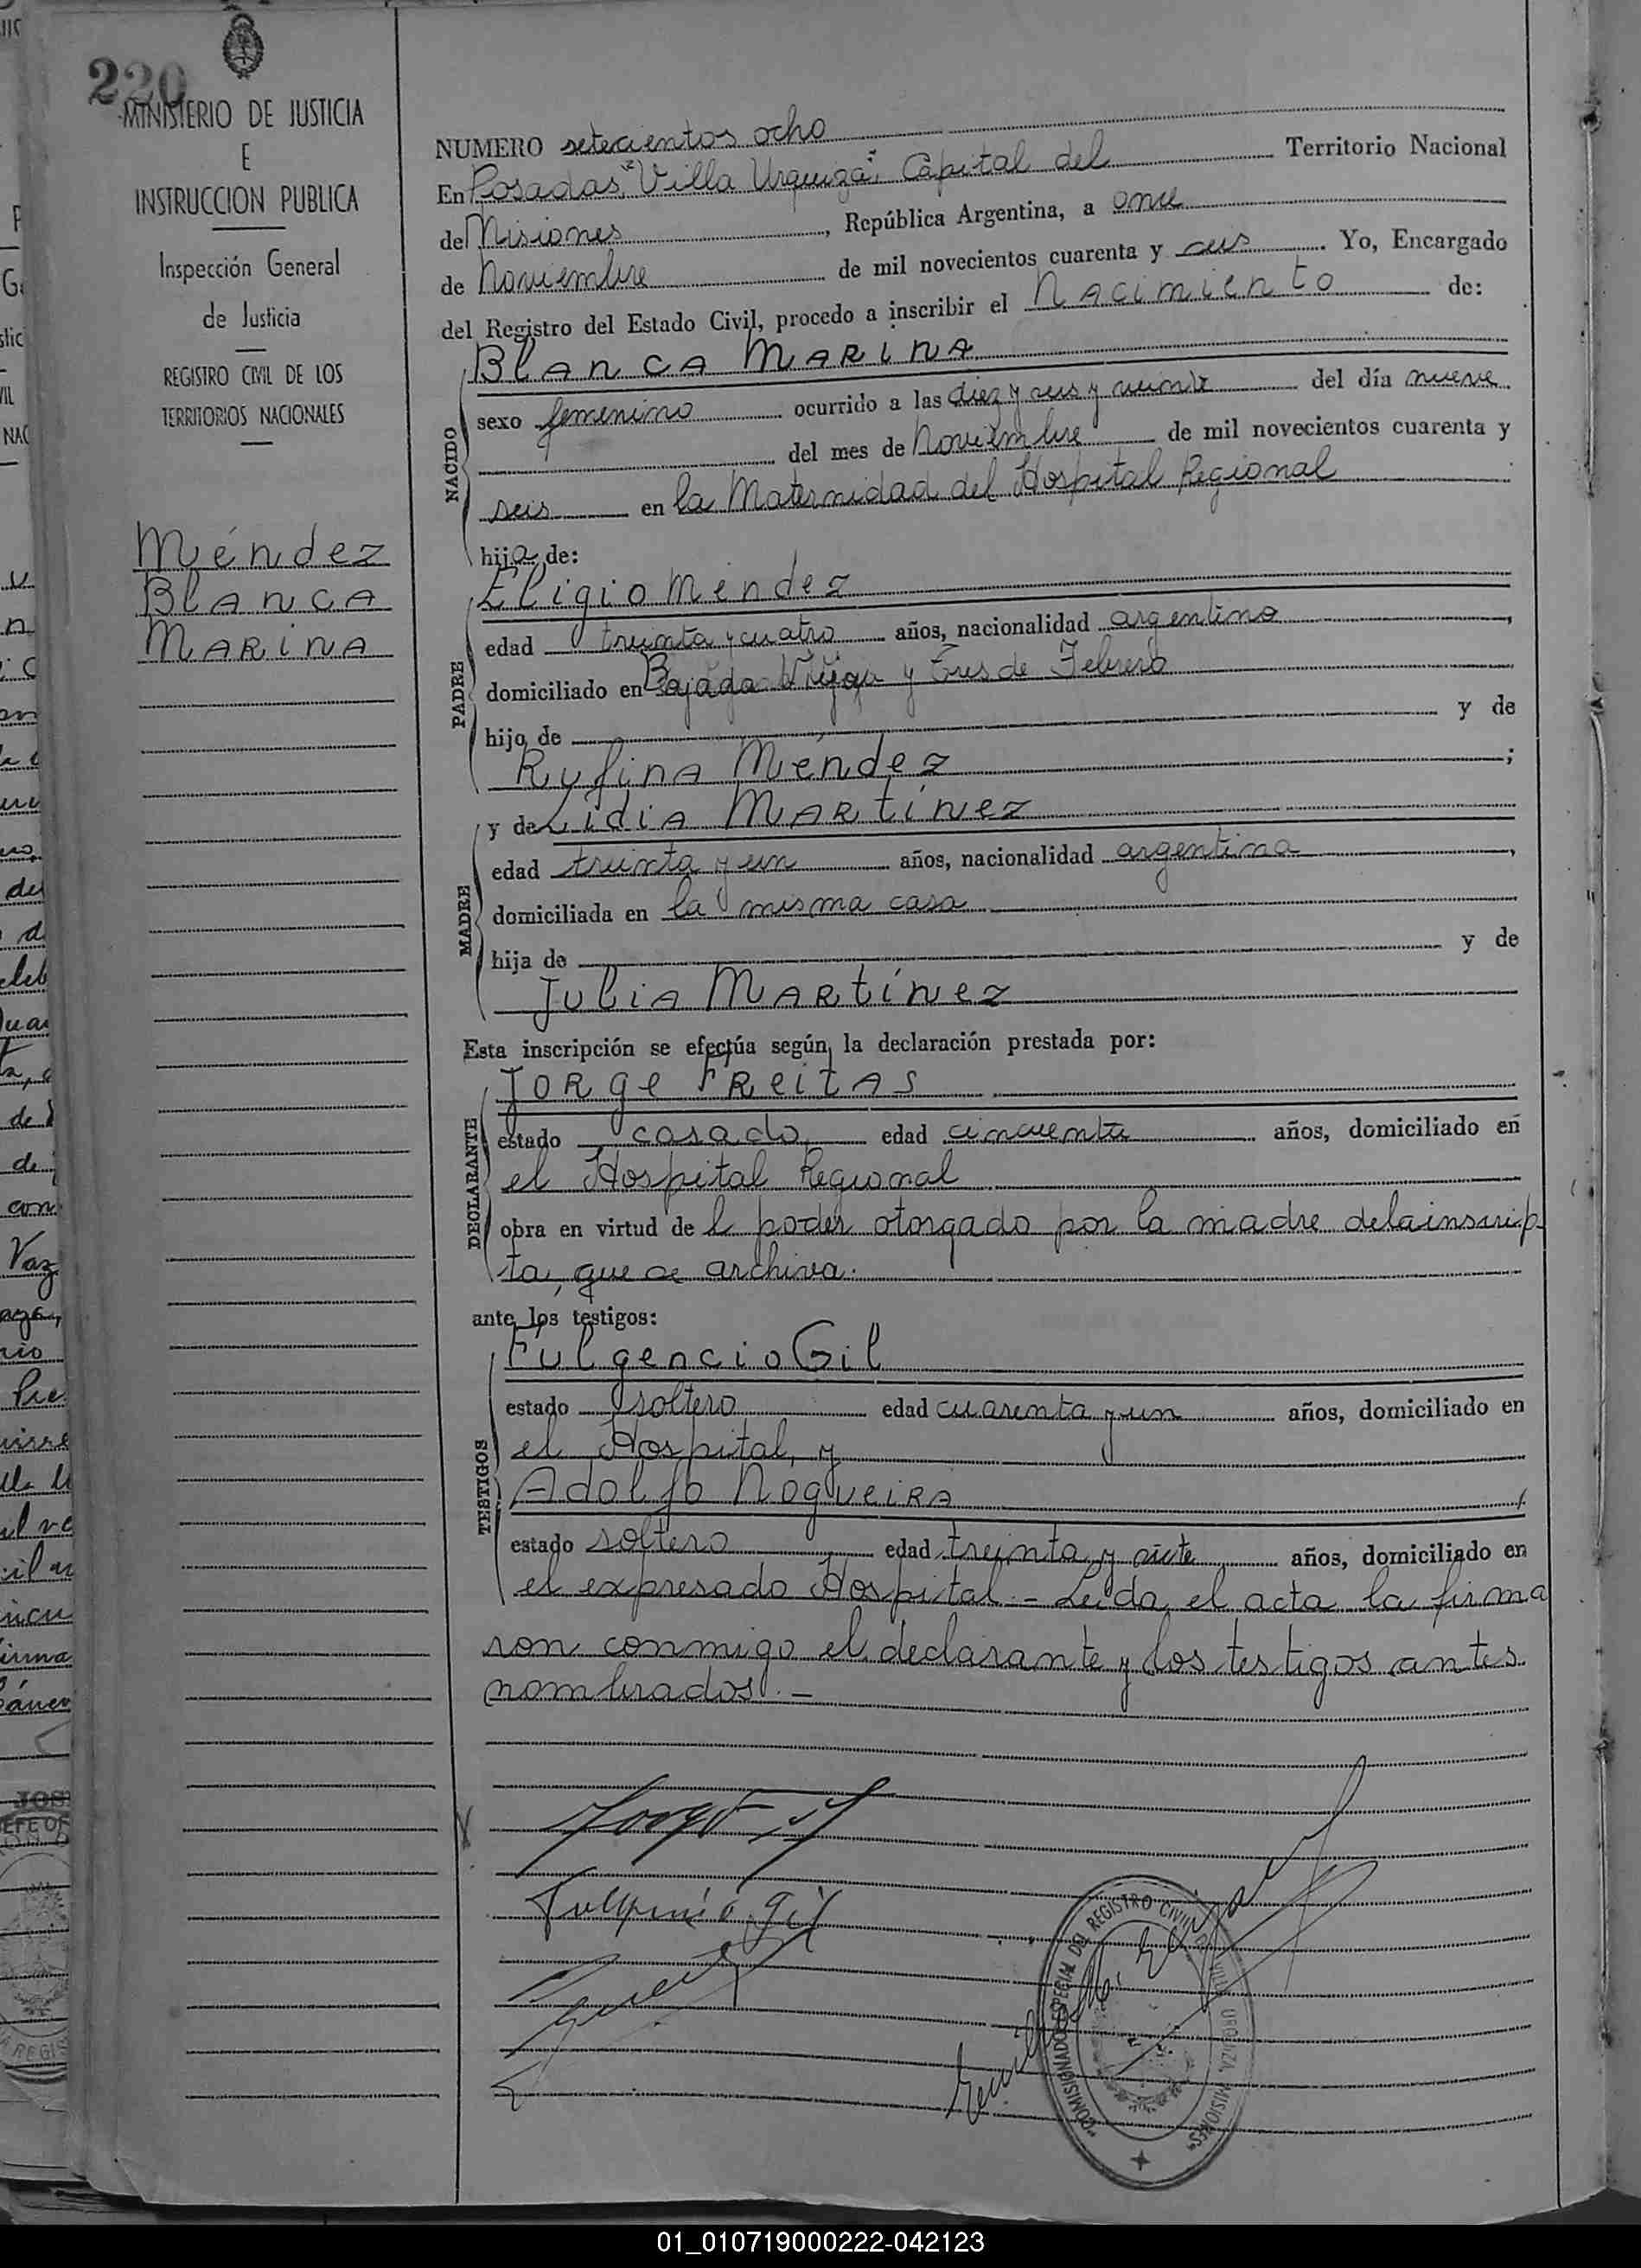 220
MINISTERIO DE JUSTICIA
E
INSTRUCCION PUBLICA
Inspección General
de Justicia
REGISTRO CIVIL DE LOS
TERRITORIOS NACIONALES
Méndez
Blanca
Marina
NUMERO setecientos ocho
En Posadas, "Villa Urquiza", Capital del Territorio Nacional
de Misiones, República Argentina, a once
de Noviembre de mil novecientos cuarenta y seis. Yo, Encargado
del Registro del Estado Civil, procedo a inscribir el Nacimiento de:
Blanca Marina
NACIDO
sexo femenino ocurrido a las diez y seis y veinte del día nueve
del mes de Noviembre de mil novecientos cuarenta y
seis en la Maternidad del Hospital Regional
hija de:
Eligio Méndez
PADRE
edad treinta y cuatro años, nacionalidad argentino,
domiciliado en Bajada Vieja y Tres de Febrero
hijo de y de
Rufina Méndez;
y de Lidia Martínez
MADRE
edad treinta y un años, nacionalidad argentina,
domiciliada en la misma casa
hija de y de
Julia Martínez
Esta inscripción se efectúa según la declaración prestada por:
Jorge Freitas
DECLARANTE
estado casado, edad cincuenta años, domiciliado en
el Hospital Regional
obra en virtud de l poder otorgado por la madre de la inscrip
ta, que se archiva.
ante los testigos:
Fulgencio Gil
TESTIGOS
estado soltero edad cuarenta y un años, domiciliado en
el Hospital, y
Adolfo Nogueira
estado soltero edad treinta y siete años, domiciliado en
el expresado Hospital.- Leída el acta la firma
ron conmigo el declarante y los testigos antes
nombrados.-
Fulgencio Gil
COMISIONADO ESPECIAL DEL REGISTRO CIVIL DE VILLA URQUIZA MISIONES
01_010719000222-042123